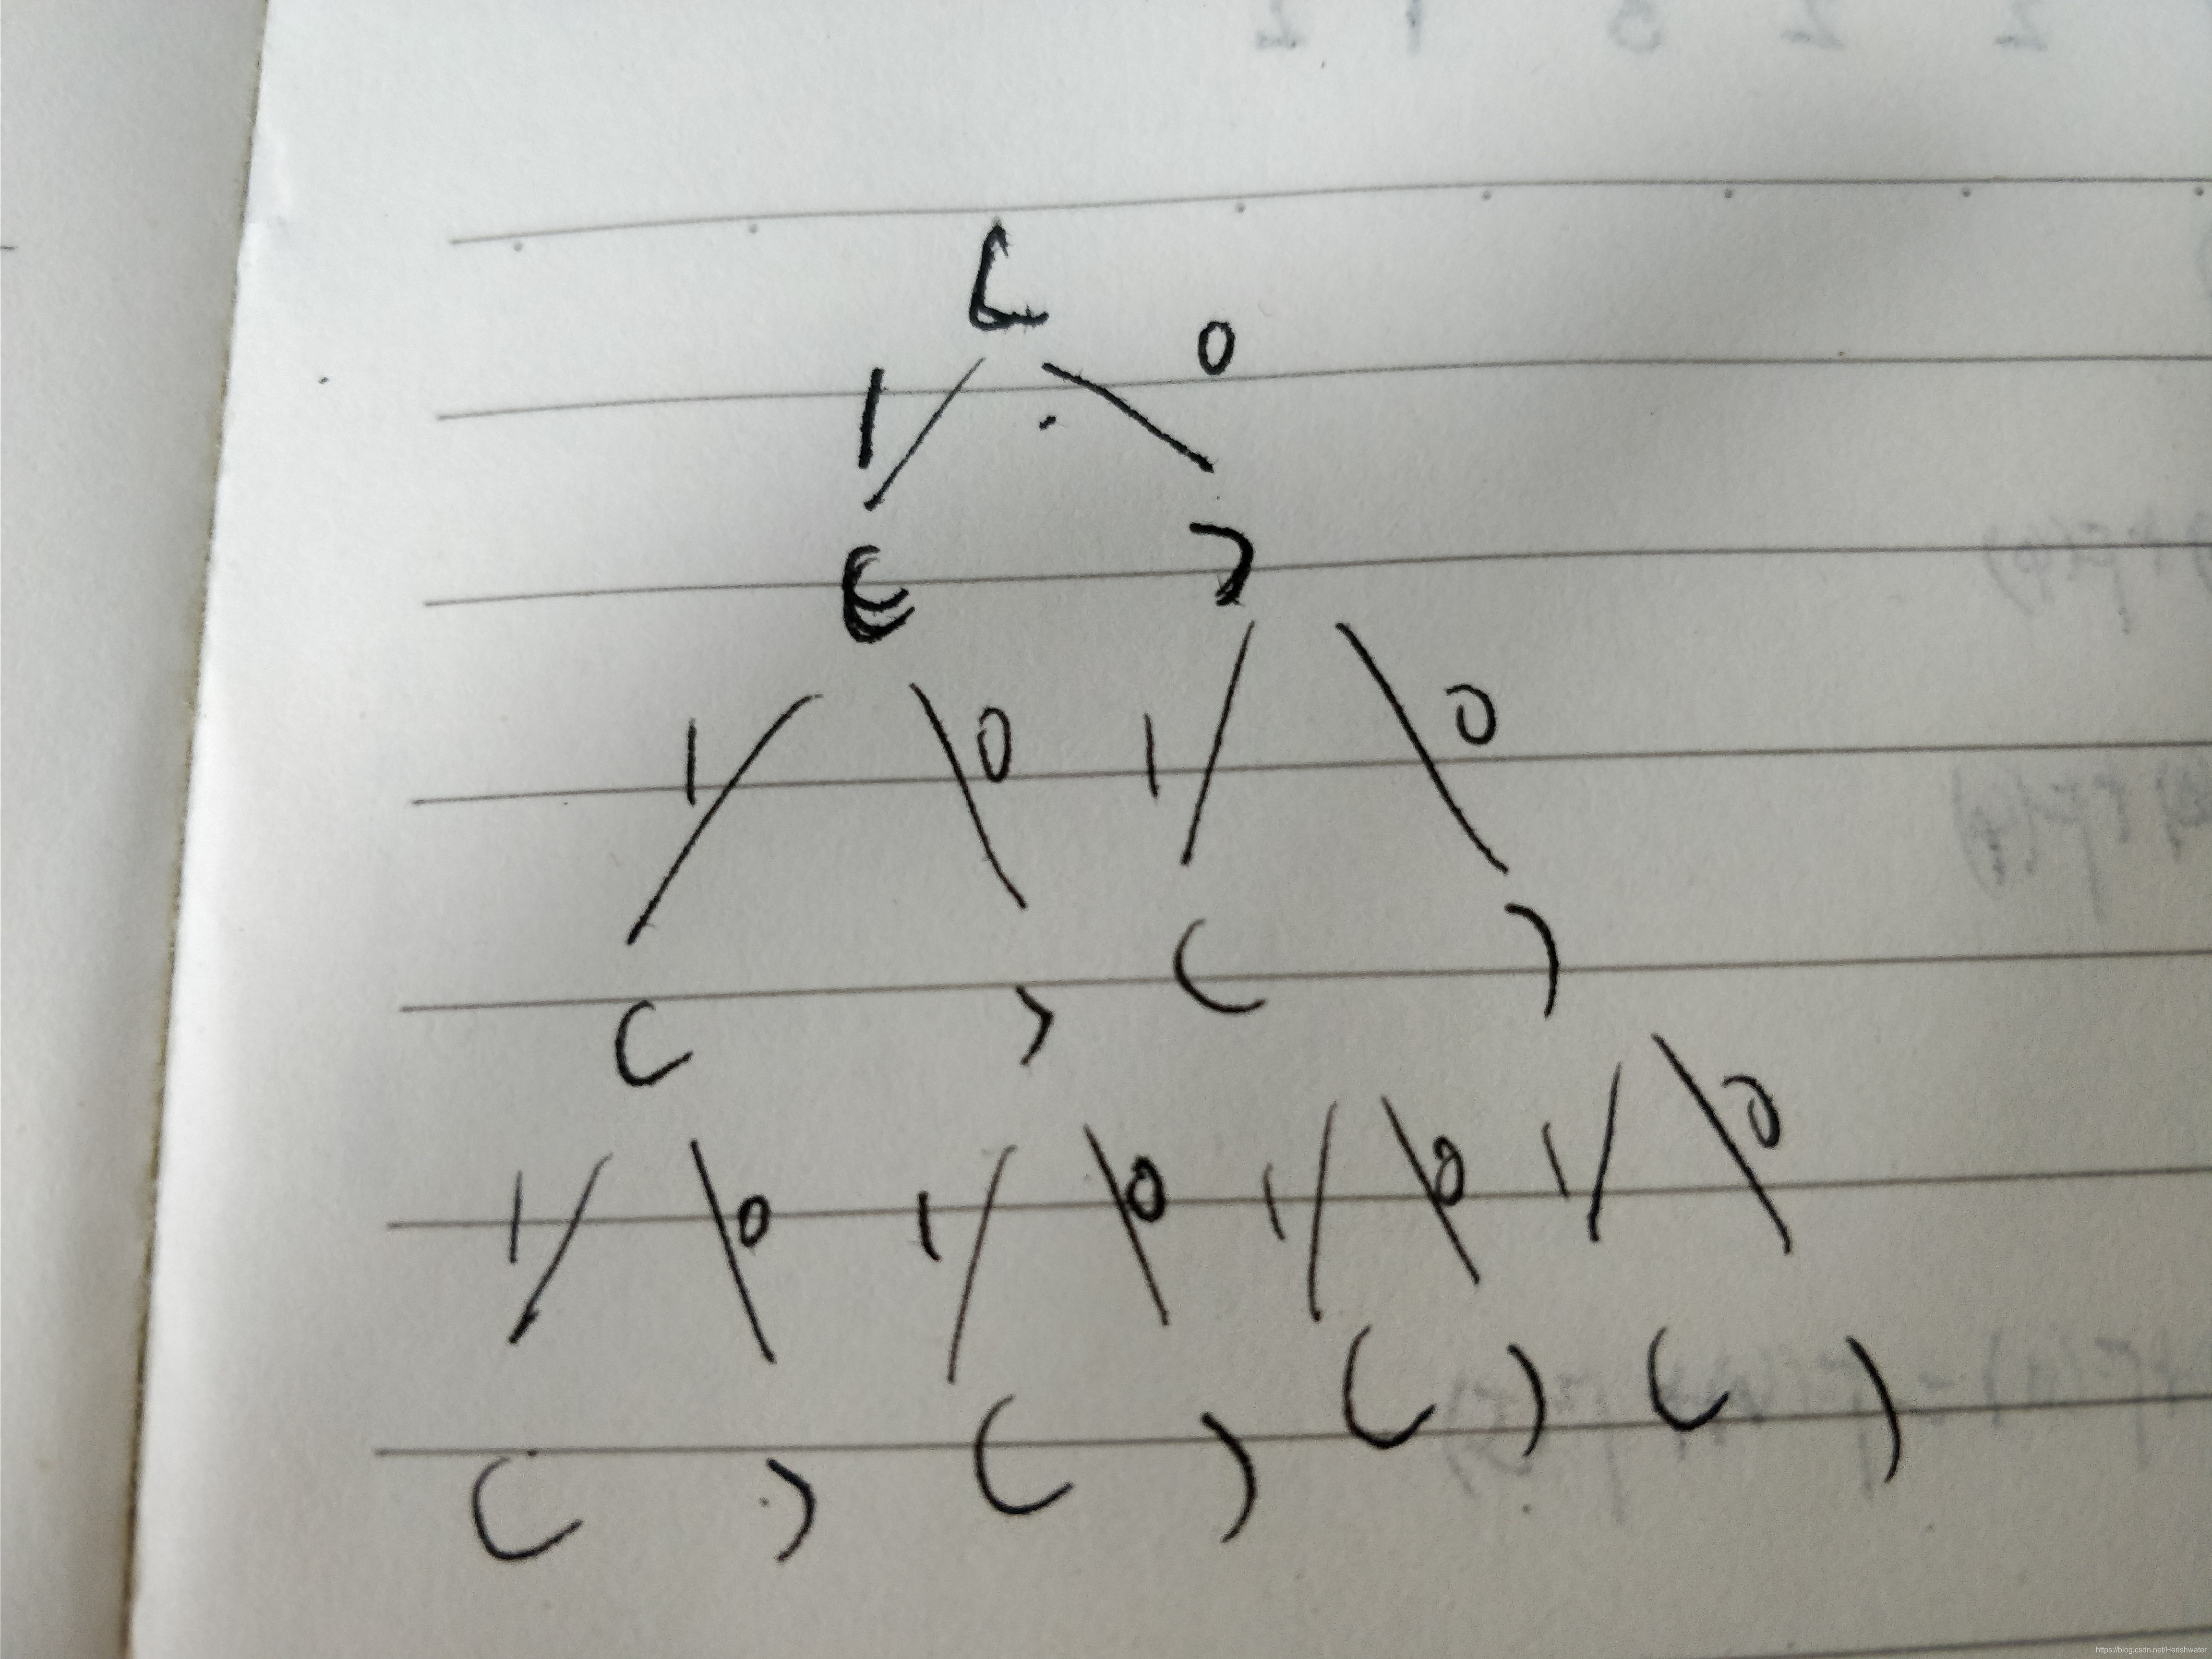 (
1 0
( )
1 0 1 0
( ) ( )
1 0 1 0 1 0 1 0
( ) ( ) ( ) ( )
https://blog.csdn.net/Herishwater